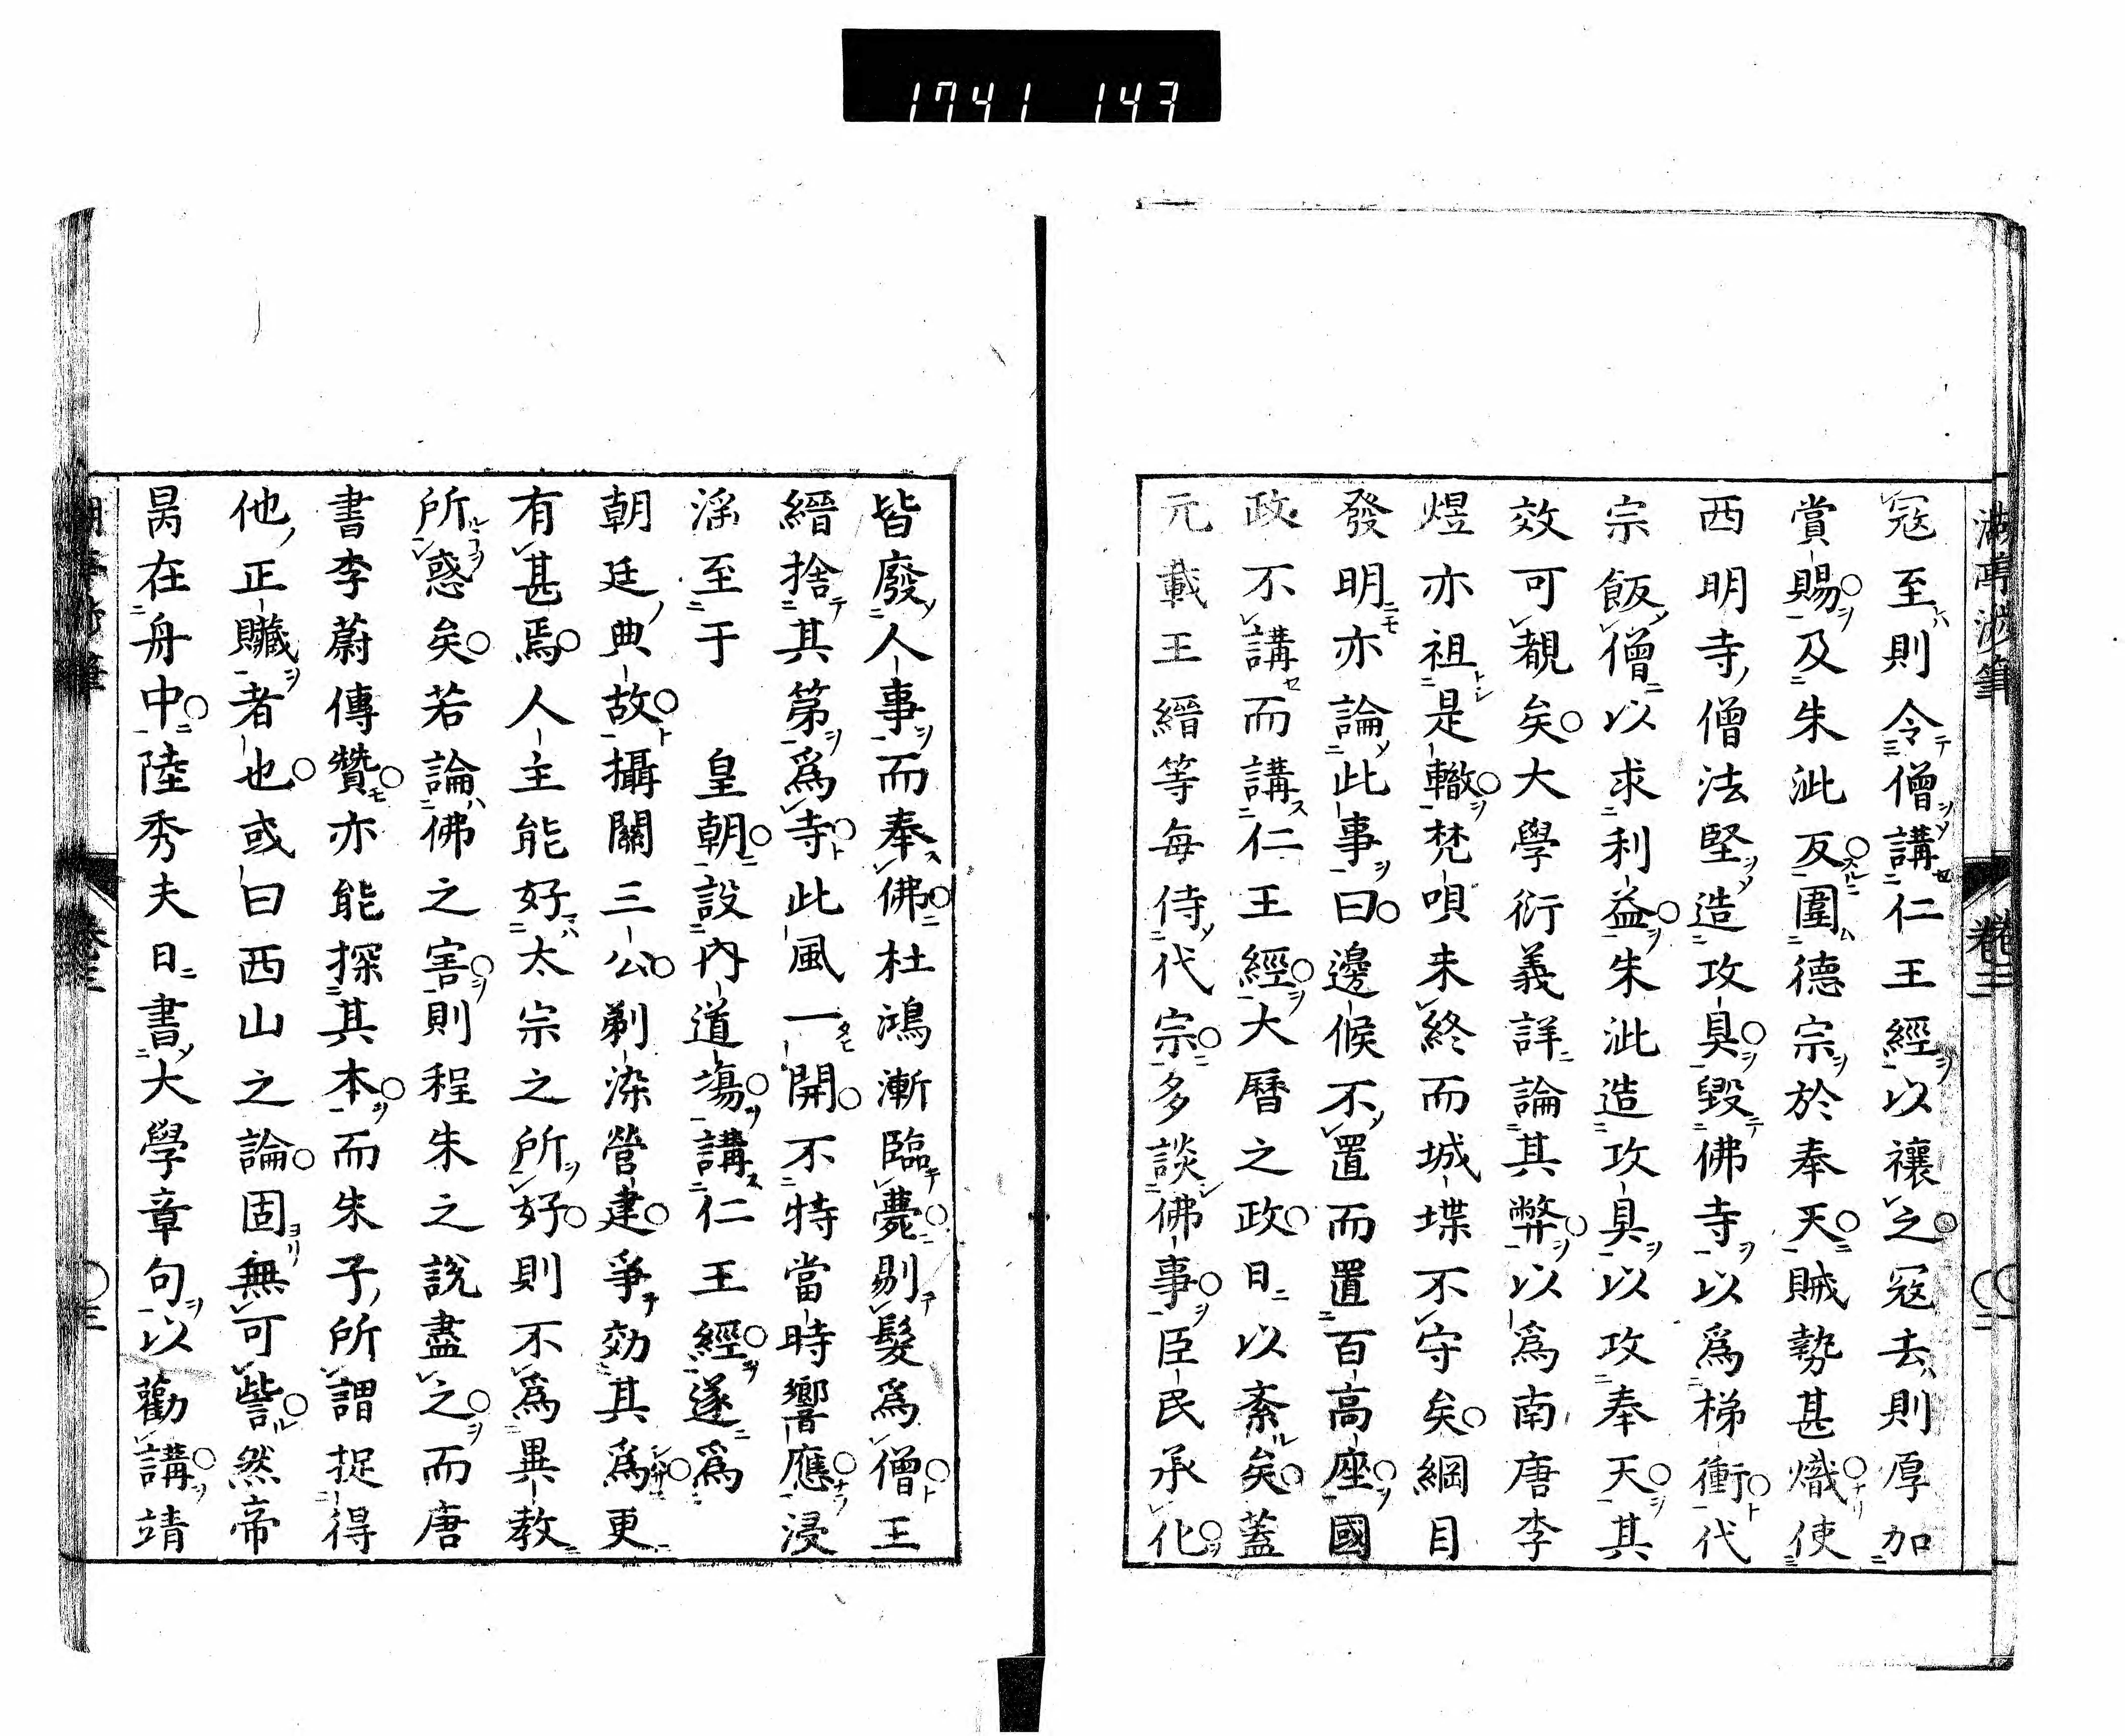 1741 143
湖亭涉筆
卷二
〇二
寇至則令僧講仁王經以禳之寇去則厚加
賞賜及朱泚反圍德宗於奉天賊勢甚熾使
西明寺僧法堅造攻具毀佛寺以爲梯衝代
宗飯僧以求利益朱泚造攻具以攻奉天其
效可覩矣大學衍義詳論其弊以爲南唐李
煜亦祖是轍梵唄未終而城堞不守矣綱目
發明亦論此事曰邊候不置而置百高座國
政不講而講仁王經大曆之政日以紊矣蓋
元載王縉等每侍代宗多談佛事臣民承化
皆廢人事而奉佛杜鴻漸臨薨剔髮爲僧王
縉捨其第爲寺此風一開不特當時響應浸
淫至于　皇朝設內道場講仁王經遂爲
朝廷典故攝關三公剃染營建爭効其爲更
有甚焉人主能好太宗之所好則不爲異教
所惑矣若論佛之害則程朱之說盡之而唐
書李蔚傳贊亦能探其本而朱子所謂捉得
他正贓者也或曰西山之論固無可訾然帝
昺在舟中陸秀夫日書大學章句以勸講靖